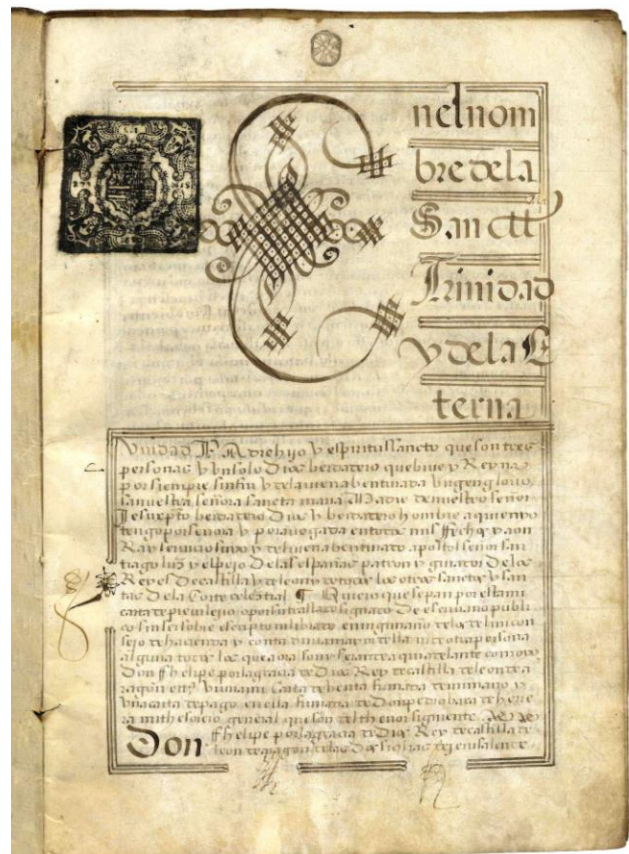 En el nom
bre de la
Sanctt
Trinidad
y de la E
terna
Vnidad Padre hijo y espiritu Sancto que son tres
personas y vn solo Dios berdadero que biue y Reyna
por siempre sin fin y de la bien abenturada Virgen gloriosa
santa maria Madre de nuestro señor
Jesuxpto berdadero Dios y berdadero hombre a quien yo
tengo por señora y por abogada en todos mis ffechos y a on
Ra y seruicio suyo y del bien abenturado apostol señor san
tiago luz y espejo de las españas patron y guiador de los
Reyes de castilla y de leon y de todos los otros sanctos y san
tas de la Corte celestial Quiero que sepan por esta mi
carta de preuilegio o por su traslado signado de escriuano publi
co sin ser sobre escripto ni librado en ninguno de los del mi con
sejo de hacienda y contaduria mayor della ni de otra persona
alguna todos los que aora son y seran de aqui adelante como yo
Don ffhelipe por la gracia de Dios Rey de castilla de leon de a
ragon etc Vi una mi Carta de benta firmada de mi mano y
vna carta de pago en ella firmada de Don pedro
mi thesorero general que son del thenor siguiente
Don ffhelipe por la gracia de Dios Rey de castilla de
leon de aragon de las dos sicilias de jerusalen de